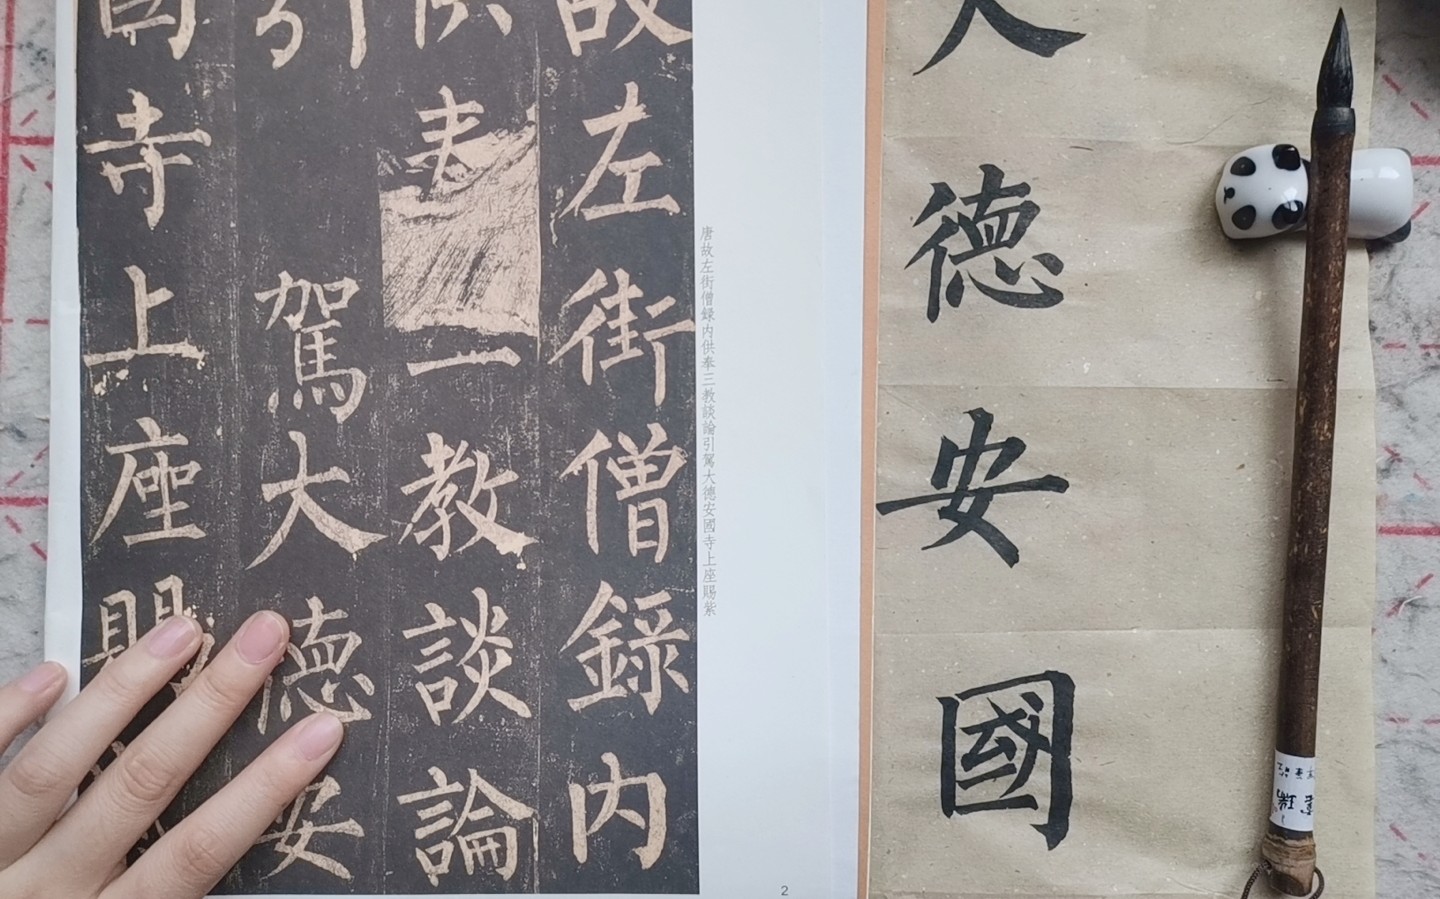 故左街僧録内
供奉
教談論
引
駕大德安
國寺上座賜
唐故左街僧録内供奉三教談論引駕大德安國寺上座賜紫
2
大德安國